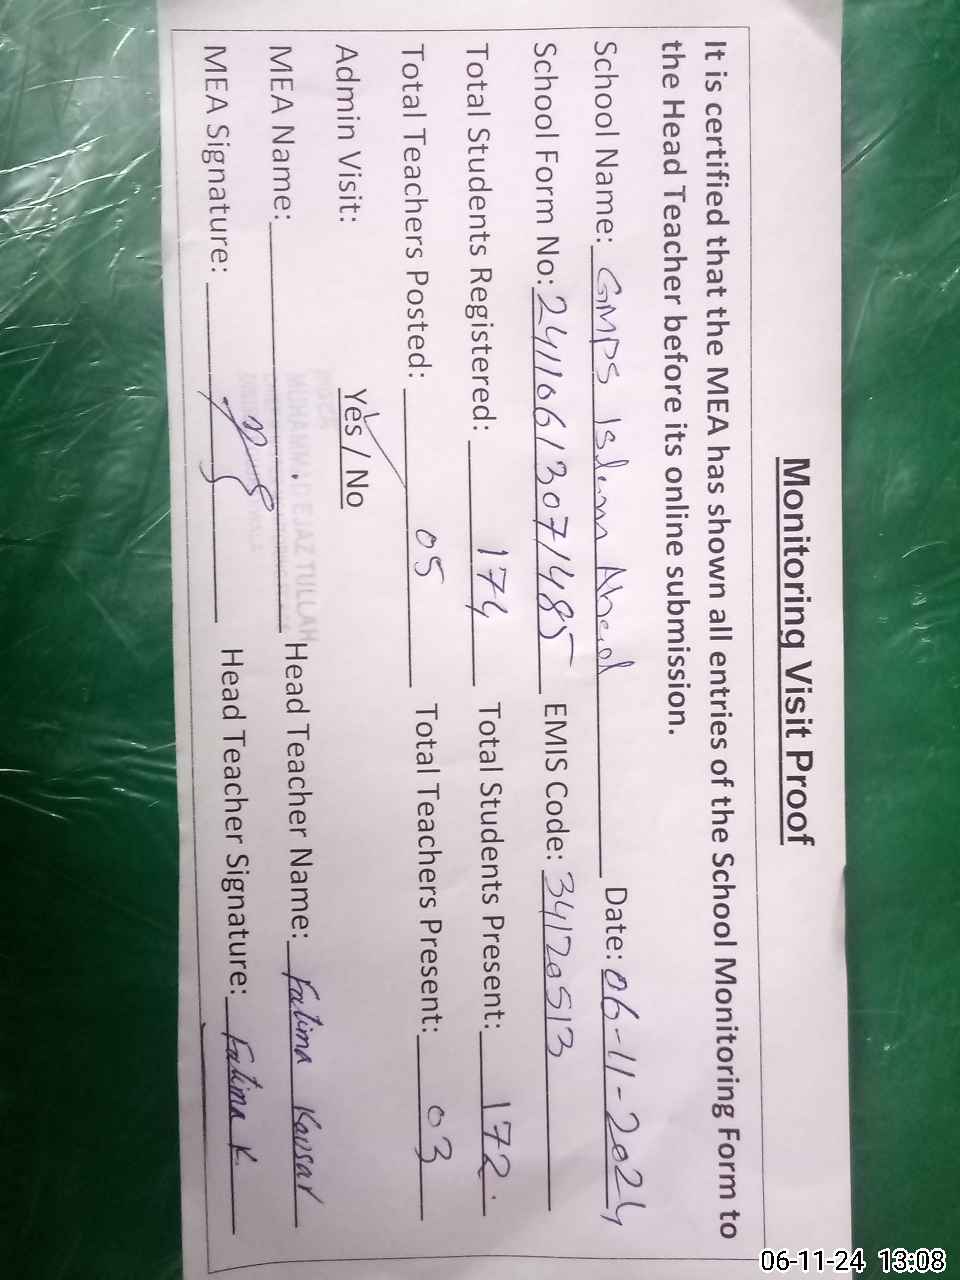 Monitoring Visit Proof
It is certified that the MEA has shown all entries of the School Monitoring Form to
the Head Teacher before its online submission.
School Name: GMPS Islam Abad Date: 06-11-2024
School Form No: 24110613071485 EMIS Code: 34120513
Total Students Registered: 174 Total Students Present: 172
Total Teachers Posted: 05 Total Teachers Present: 03
Admin Visit: Yes / No
MUHAMMAD EJAZ TULLAH
MEA Name: Head Teacher Name: Fatima Kousar
MEA Signature: Head Teacher Signature: Fatima K.
06-11-24 13:08